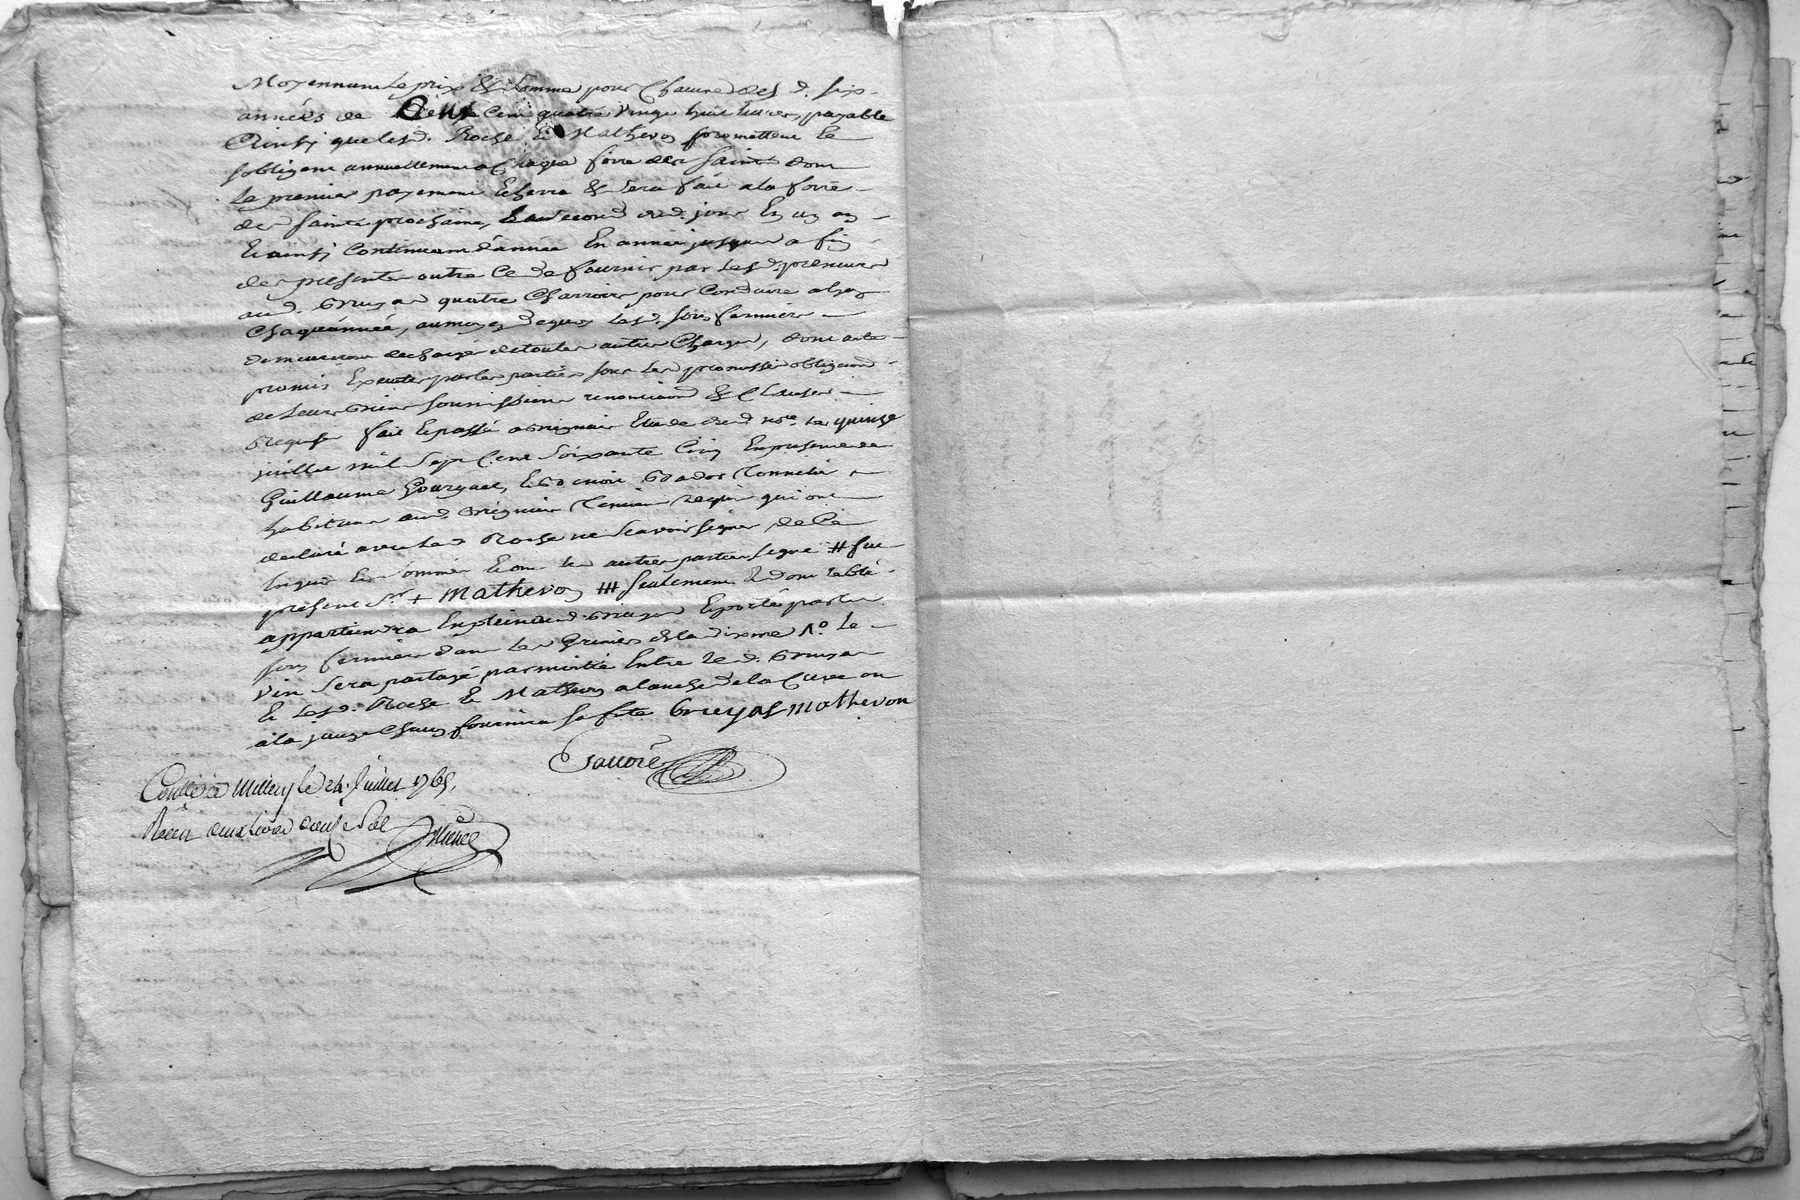 Moyennant le prix & somme pour Chacune desd. six
années de Deux Cent quatre vingt huit livres, payable
Ainsi que lesd. Roche et Mathevon promettent et
s'obligent annuellement a Chaque foire des saints dont
Le premier payement Echerra & sera fait a la foire
des saints prochaine, Le second aud. jour En un an
Et ainsi Continuant d'année En année jusques a fin
des presentes outre Ce de fournir par lesd. preneurs
aud. Gruyas quatre Charrois pour Conduire
Chaque année, au moyen dequoy Lesd. sous fermiers
demeureront dechargés de toutes autres Charges, dont acte
promis Executer par les parties sous les promesses obligaons
de leurs biens soumissions renonciaons & Clauses
Requises fait et passé a Grignieu Etude dud. nore. Le quinze
juillet mil sept Cent soixante Cinq En presence de
Guillaume Gourgaut, et Tonnelier
habitants aud. Grignieu Temoins requis qui ont
declaré avec led. Roche ne scavoir signer de Ce
Enquis Et sommés Et ont les autres parties signé # sur
présent + Mathevon ## seulement dont le blé
appartiendra En plein aud. Gruyas Et porté par les
sous fermiers dans les Greniers de la dixme Le
vin sera partagé par moitié Entre led. Gruyas
Et lesd. Roche Et Mathevon a l'anche de la Cuve ou
a la jauge Chacun fournira sa futte Gruyas Mathevon
Contrôlé a Millery le 24. Juillet 1765.
Reçu deux livres douze sols